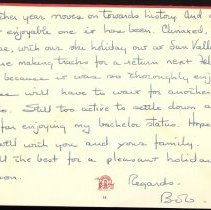 ther year moves on towards history. And a
enjoyable one it has been. Climaxed,
se, with our ski holiday out at Sun Valley
ne making tracks for a return next Feb
because it was so thoroughly enj
ee will have to wait for another
. Still too active to settle down a
far enjoying my bachelor status. Hope
well with you and yours family.
ll the best for a pleasant holiday
son.
Regards,
Bob